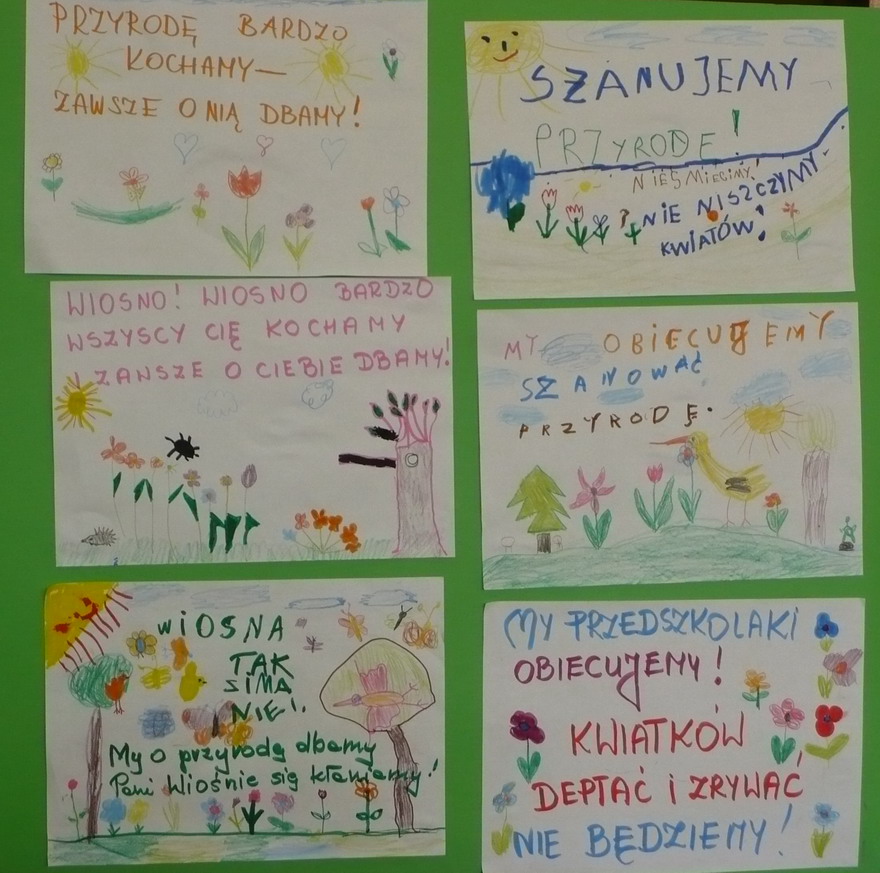 PRZYRODĘ BARDZO
KOCHAMY—
ZAWSZE O NIĄ DBAMY!
SZANUJEMY
PRZYRODE!
NIEŚMIECIMY!
NIE NISZCZYMY
KWIATÓW!
WIOSNO! WIOSNO BARDZO
WSZYSCY CIĘ KOCHAMY
I ZAWSZE O CIEBIE DBAMY!
MY OBIECUJEMY
SZANOWAĆ
PRZYRODĘ.
WIOSNA
TAK
ZIMA
NIE!
My o przyrodę dbamy
Pani Wiośnie się kłaniamy!
MY PRZEDSZKOLAKI
OBIECUJEMY!
KWIATKÓW
DEPTAĆ i ZRYWAĆ
NIE BĘDZIEMY!